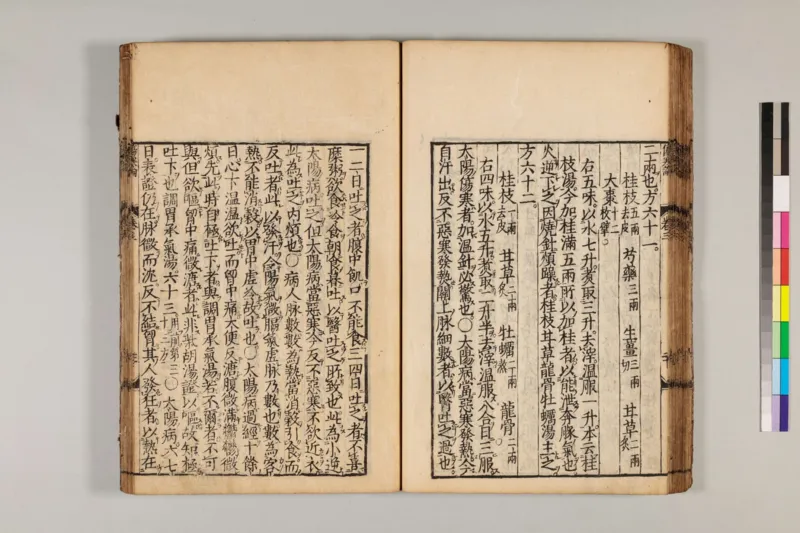 二兩也方六十一。
桂枝五兩去皮 芍藥三兩 生薑三兩切 甘草二兩炙
大棗十二枚擘
右五味以水七升煮取三升去滓温服一升本云桂
枝湯今加桂滿五兩所以加桂者以能泄奔豚氣也
火逆下之因燒針煩躁者桂枝甘草龍骨牡蠣湯主之
方六十二。
桂枝一兩去皮 甘草二兩炙 牡蠣二兩熬 龍骨二兩
右四味以水五升煮取二升半去滓温服八合日三服
太陽傷寒者加温針必驚也〇太陽病當惡寒發熱今
自汗出反不惡寒發熱關上脉細數者以醫吐之過也
一二日吐之者腹中飢口不能食三四日吐之者不喜
糜粥欲食冷食朝食暮吐以醫吐之所致也此為小逆
太陽病吐之但太陽病當惡寒今反不惡寒不欲近衣
此為吐之内煩也〇病人脉數數為熱當消穀引食而
反吐者此以發汗令陽氣微膈氣虛脉乃數也數為客
熱不能消穀以胃中虛冷故吐也〇太陽病過經十餘
日心下温温欲吐而胷中痛大便反溏腹微滿鬱鬱微
煩先此時自極吐下者與調胃承氣湯若不爾者不可
與但欲嘔胷中痛微溏者此非柴胡湯證以嘔故知極
吐下也調胃承氣湯六十三用前第三十三方〇太陽病六七
日表證仍在脉微而沈反不結胷其人發狂者以熱在